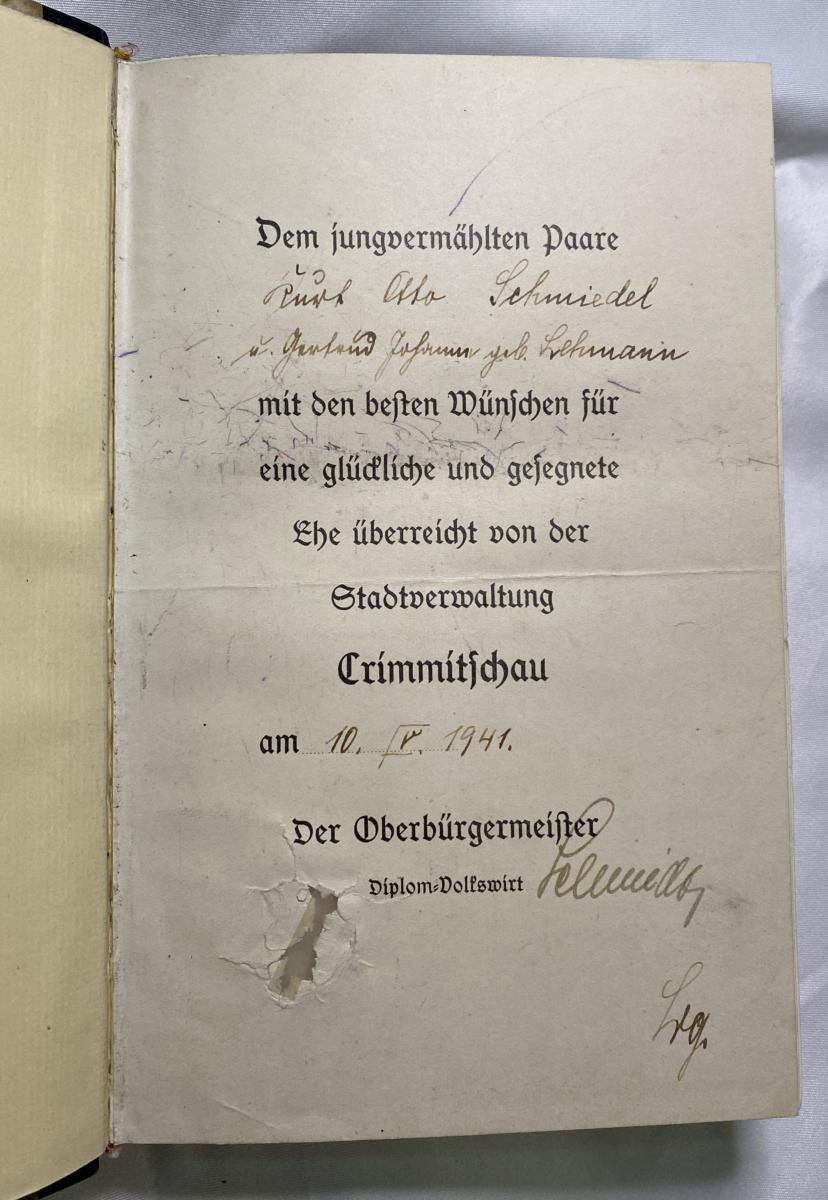 Dem jungvermählten Paare
Kurt Otto Schmiedel
u. Gertrud Johanne geb. Lehmann
mit den besten Wünschen für
eine glückliche und gesegnete
Ehe überreicht von der
Stadtverwaltung
Crimmitschau
am 10. IV. 1941.
Der Oberbürgermeister
Diplom-Volkswirt Schmidt